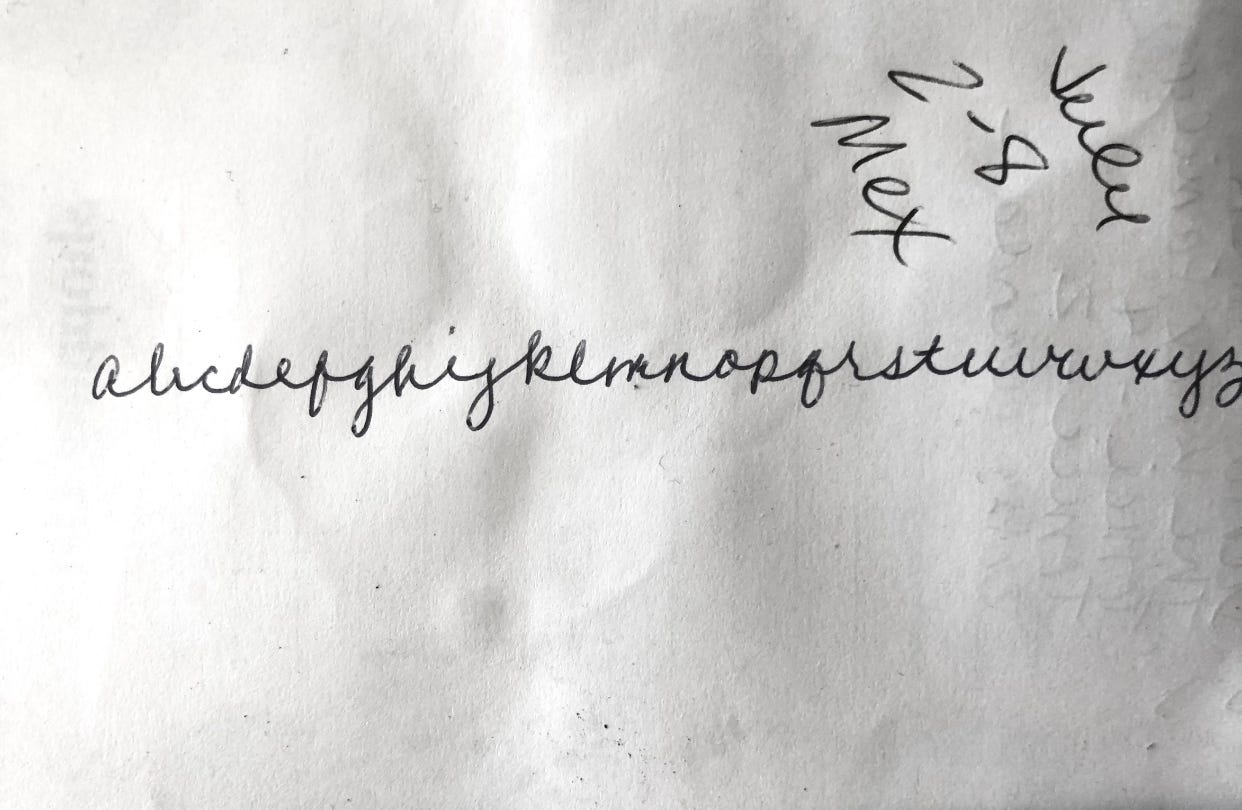 2,8
Met
abcdefghijklmnopqrstuvwxyz